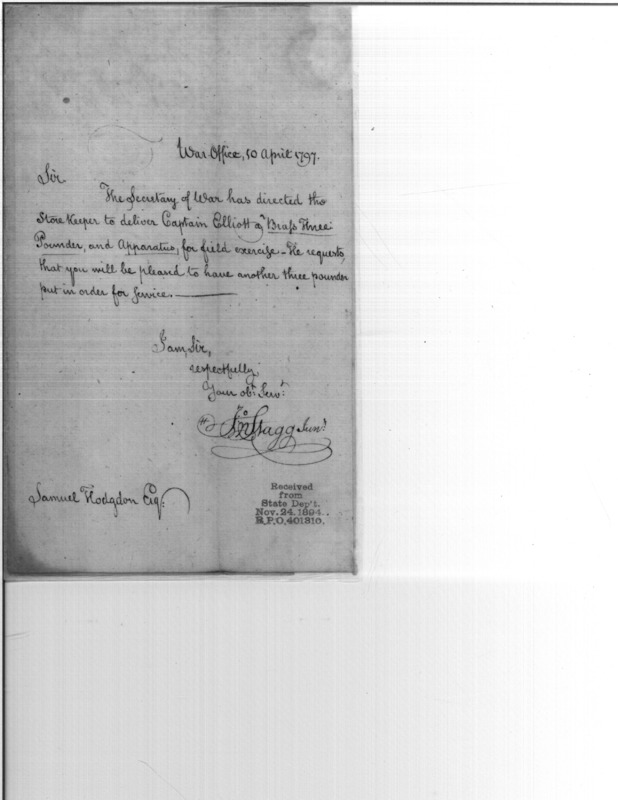 War Office, 10 April 1797.
Sir
The Secretary of War has directed the
Store Keeper to deliver Captain Elliott a Brass Three
Pounder, and Apparatus, for field exercise — He requests,
that you will be pleased to have another three pounder
put in order for service.
I am, Sir,
respectfully,
Your obt. Servt.
Jno Stagg Junr.
Samuel Hodgdon Esq.
Received
from
State Dep't.
Nov. 24. 1894.
R.P.O. 401310.